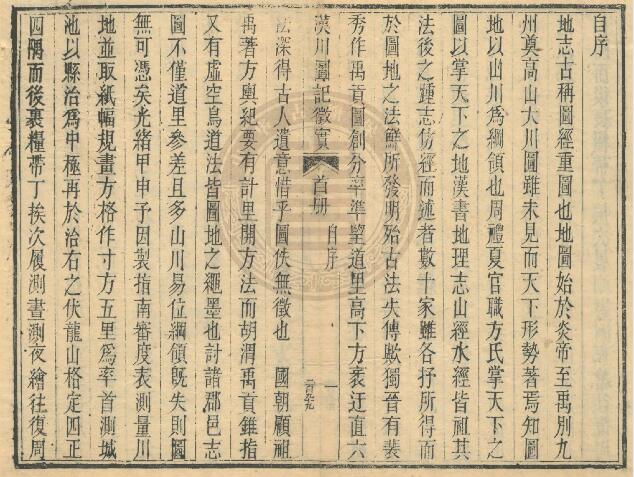 自序
地志古稱圖經重圖也地圖始於炎帝至禹別九
州奠高山大川圖雖未見而天下形勢著焉知圖
地以山川爲綱領也周禮夏官職方氏掌天下之
圖以掌天下之地漢書地理志山經水經皆祖其
法後之踵志仿經而述者數十家雖各抒所得而
於圖地之法鮮所發明殆古法失傳歟獨晉有裴
秀作禹貢圖創分率準望道里高下方衺迂直六
漢川圖記徵實
首册
自序
一
法深得古人遺意惜乎圖佚無徵也 國朝顧祖
禹著方輿紀要有計里開方法而胡渭禹貢錐指
又有虛空鳥道法皆圖地之繩墨也討諸郡邑志
圖不僅道里參差且多山川易位綱領既失則圖
無可憑矣光緒甲申予因製指南審度表測量川
地並取紙幅規畫方格作寸方五里爲率首測城
池以縣治爲中極再於治右之伏龍山格定四正
四隅而後裹糧帶丁挨次履測晝測夜繪往復周